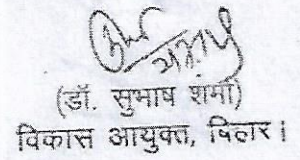 (डॉ. सुभाष शर्मा)
विकास आयुक्त, बिहार।